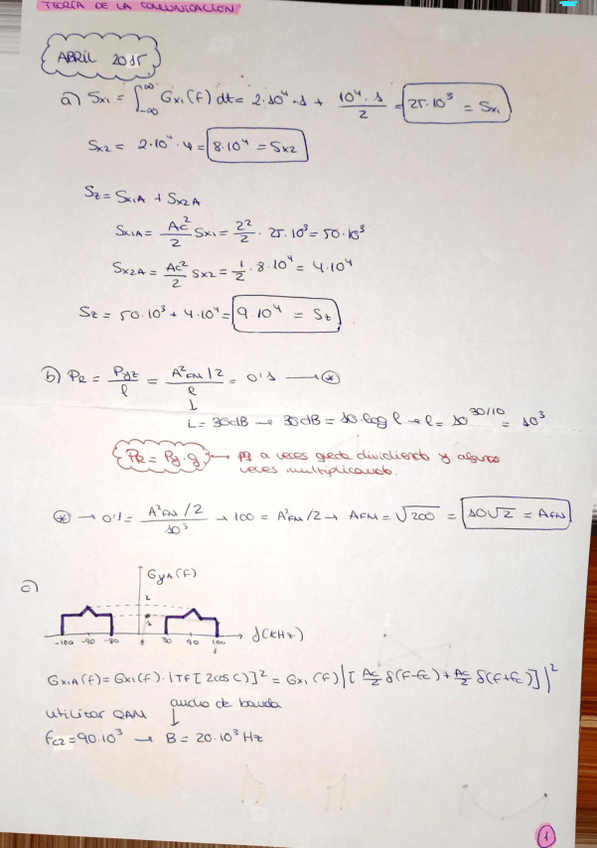 TEORÍA DE LA COMUNICACIÓN
ABRIL 2015
a) Sx1 = ∫_{-∞}^{∞} Gx1(f) dt = 2·10⁴·1 + 10⁴·1/2 = 25·10³ = Sx1
Sx2 = 2·10⁴·4 = 8·10⁴ = Sx2
Sz = Sx1A + Sx2A
Sx1A = Ac²/2 Sx1 = 2²/2 · 25·10³ = 50·10³
Sx2A = Ac²/2 Sx2 = 1/2 · 8·10⁴ = 4·10⁴
Sz = 50·10³ + 4·10⁴ = 9·10⁴ = Sz
b) PR = Pyz/l = A²FM/2 / l = 0'1 → *
L = 30dB → 30dB = 10·log l → l = 10^{30/10} = 10³
PR = Py·g → PR a veces queda dividiendo y algunas
veces multiplicando.
* → 0'1 = A²FM/2 / 10³ → 100 = A²FM/2 → AFM = √200 = 10√2 = AFM
c)
GyA(f)
2
1
-100 -90 -80 80 90 100 f(kHz)
Gx1A(f) = Gx1(f)·|TF[2cos()]² = Gx1(f)|[Ac/2 δ(f-fc) + Ac/2 δ(f+fc)]|²
utilizar QAM ancho de banda
fc2 = 90·10³ → B = 20·10³ Hz
1